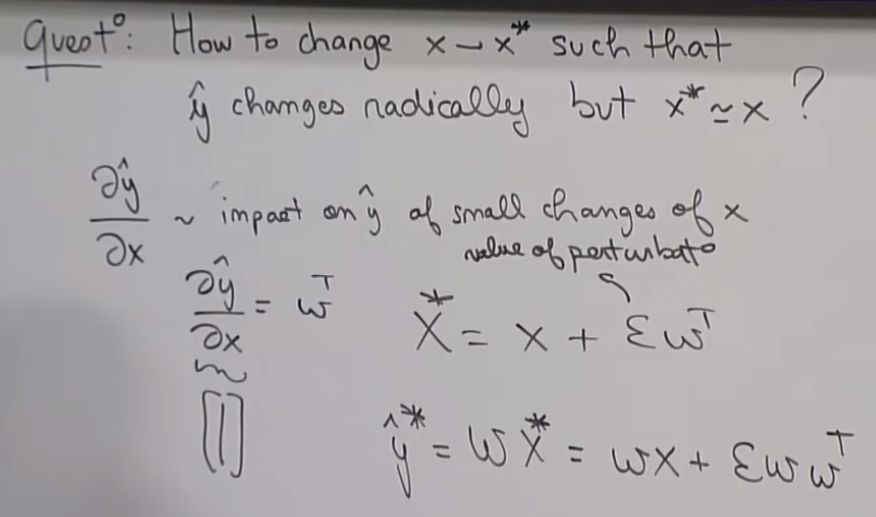 Quest°: How to change x → x* such that
ŷ changes radically but x* ≃ x ?
∂ŷ/∂x ~ impact on ŷ of small changes of x
value of perturbat°
∂ŷ/∂x = wᵀ x* = x + εwᵀ
ŷ* = wx* = wx + εwwᵀ